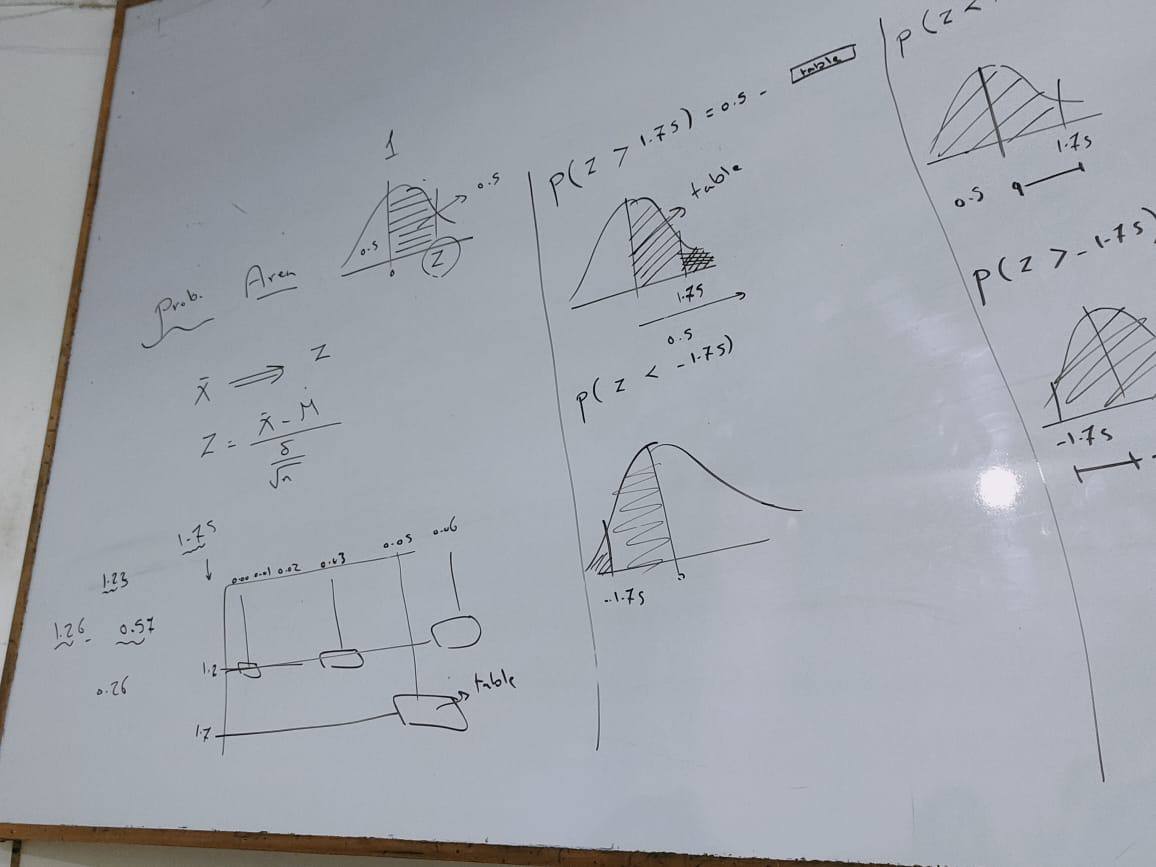 1
0.5
0.5
0
Z
Prob. Area
X̄ ⟹ Z
Z = X̄ - M
δ
√n
1.75
1.23
1.26 - 0.57
0.26
0.00 0.01 0.02 0.03 0.05 0.06
1.2
1.7
table
P(Z > 1.75) = 0.5 - table
table
1.75
0.5
P(Z < -1.75)
-1.75
0
P(Z <
1.75
0.5
P(Z > -1.75)
-1.75